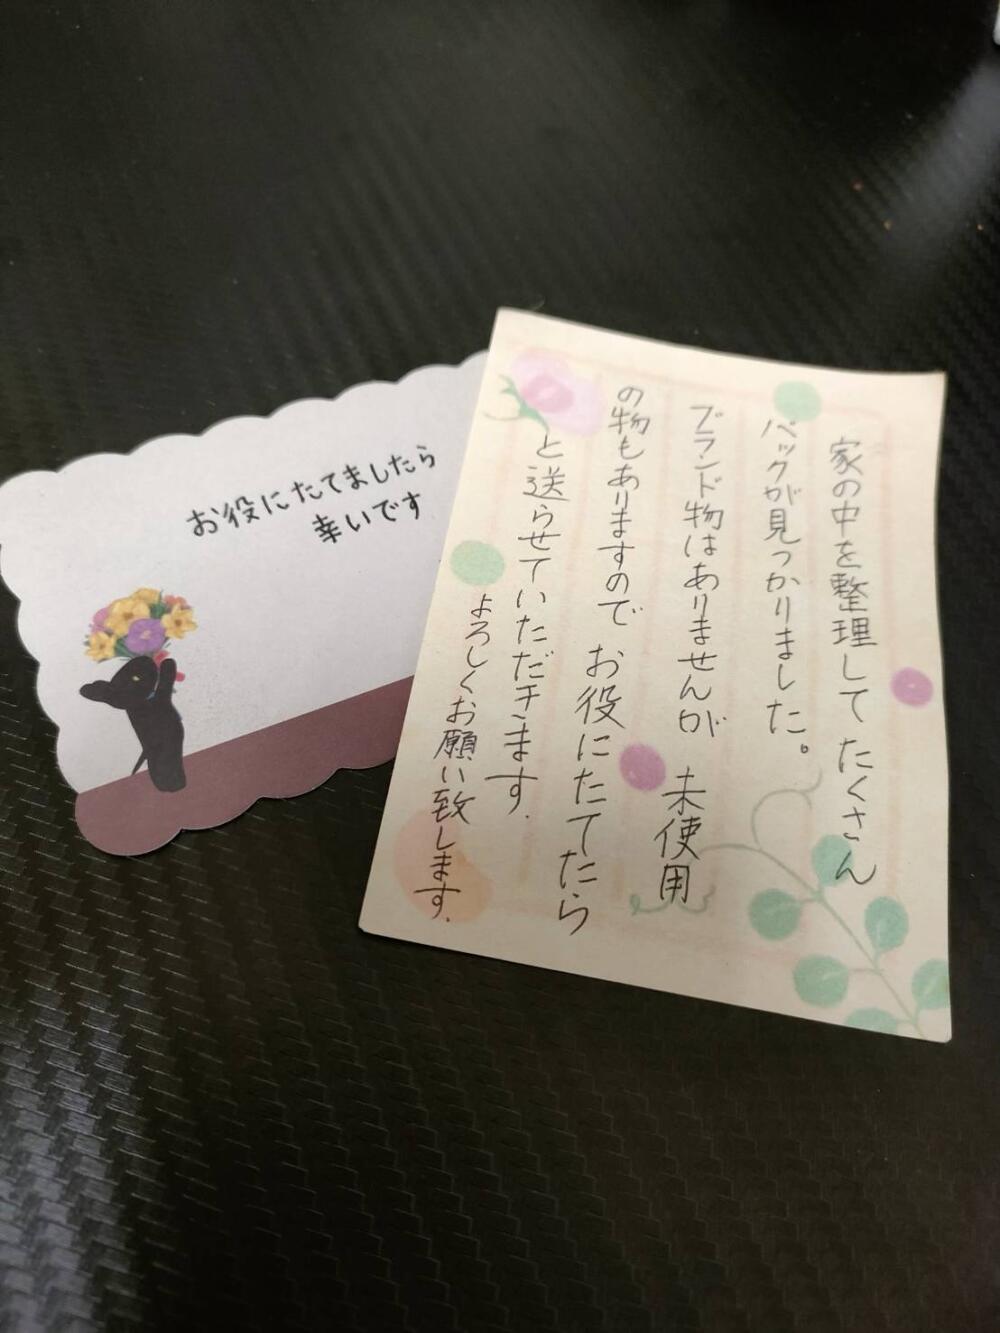 お役にたてましたら
幸いです
家の中を整理して たくさん
バックが見つかりました。
ブランド物はありませんが 未使用
の物もありますので お役にたてたら
と送らせていただきます.
よろしくお願い致します.